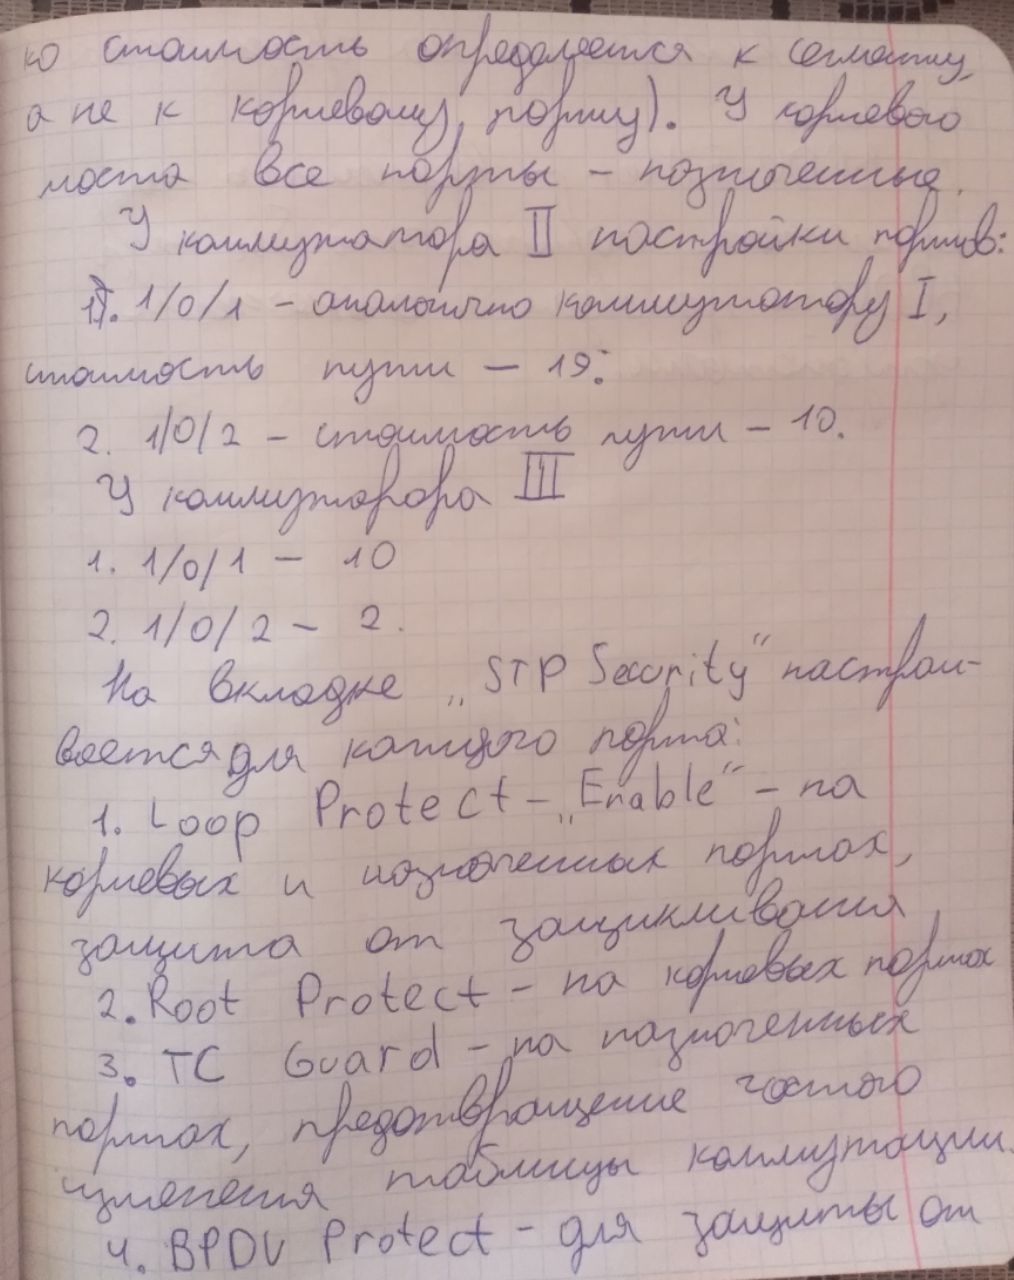 ко стоимость определяется к сегменту,
а не к корневому порту). У корневого
моста все порты - назначенные.
У коммутатора II настройки портов:
1. 1/0/1 - аналогично коммутатору I,
стоимость пути - 19.
2. 1/0/2 - стоимость пути - 10.
У коммутарора III
1. 1/0/1 - 10
2. 1/0/2 - 2.
На вкладке „STP Security“ настраи-
вается для каждого порта:
1. Loop Protect - „Enable“ - на
корневых и назначенных портах,
защита от зацикливания
2. Root Protect - на корневых портах
3. TC Guard - на назначенных
портах, предотвращение частого
изменения таблицы коммутации.
4. BPDU Protect - для защиты от